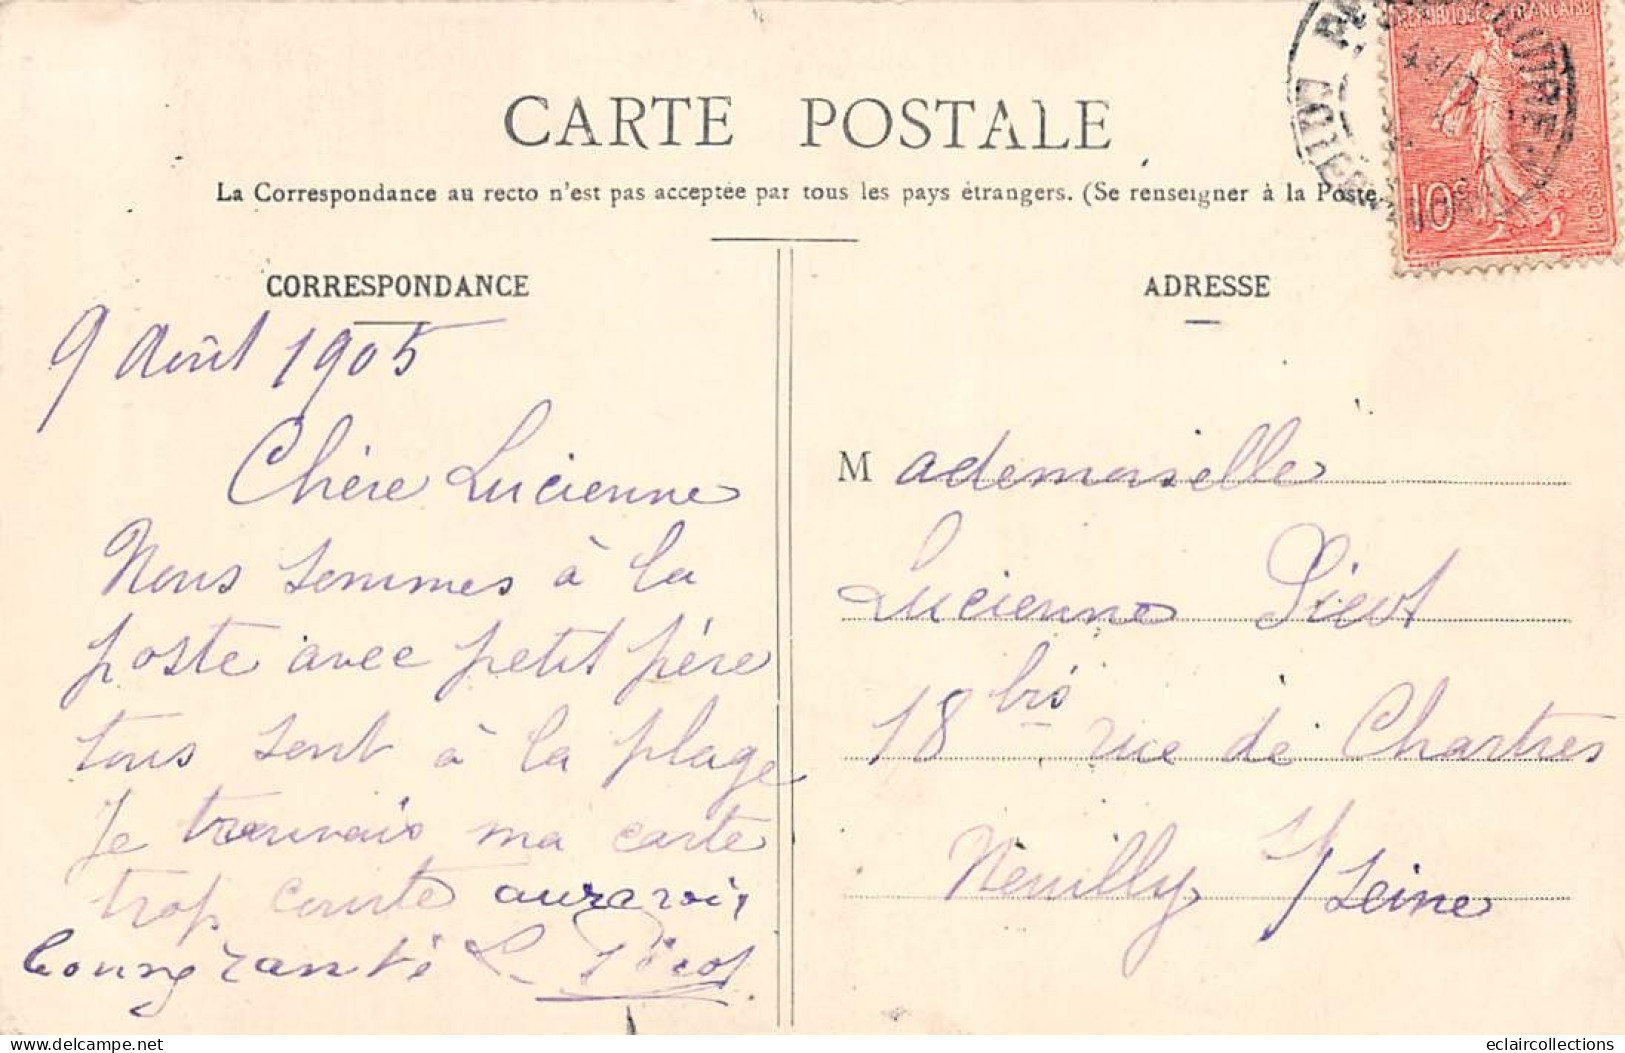 CARTE POSTALE
La Correspondance au recto n'est pas acceptée par tous les pays étrangers. (Se renseigner à la Poste
RÉPUBLIQUE FRANÇAISE
10c
POSTES
CORRESPONDANCE
9 Août 1905
Chère Lucienne
Nous sommes à la
poste avec petit père
tous sont à la plage
Je trouvais ma carte
trop courte aurevoir
bonne santé L. Picot
ADRESSE
Mademoiselle
Lucienne Picot
18 bis rue de Chartres
Neuilly s/Seine
www.delcampe.net
eclaircollections